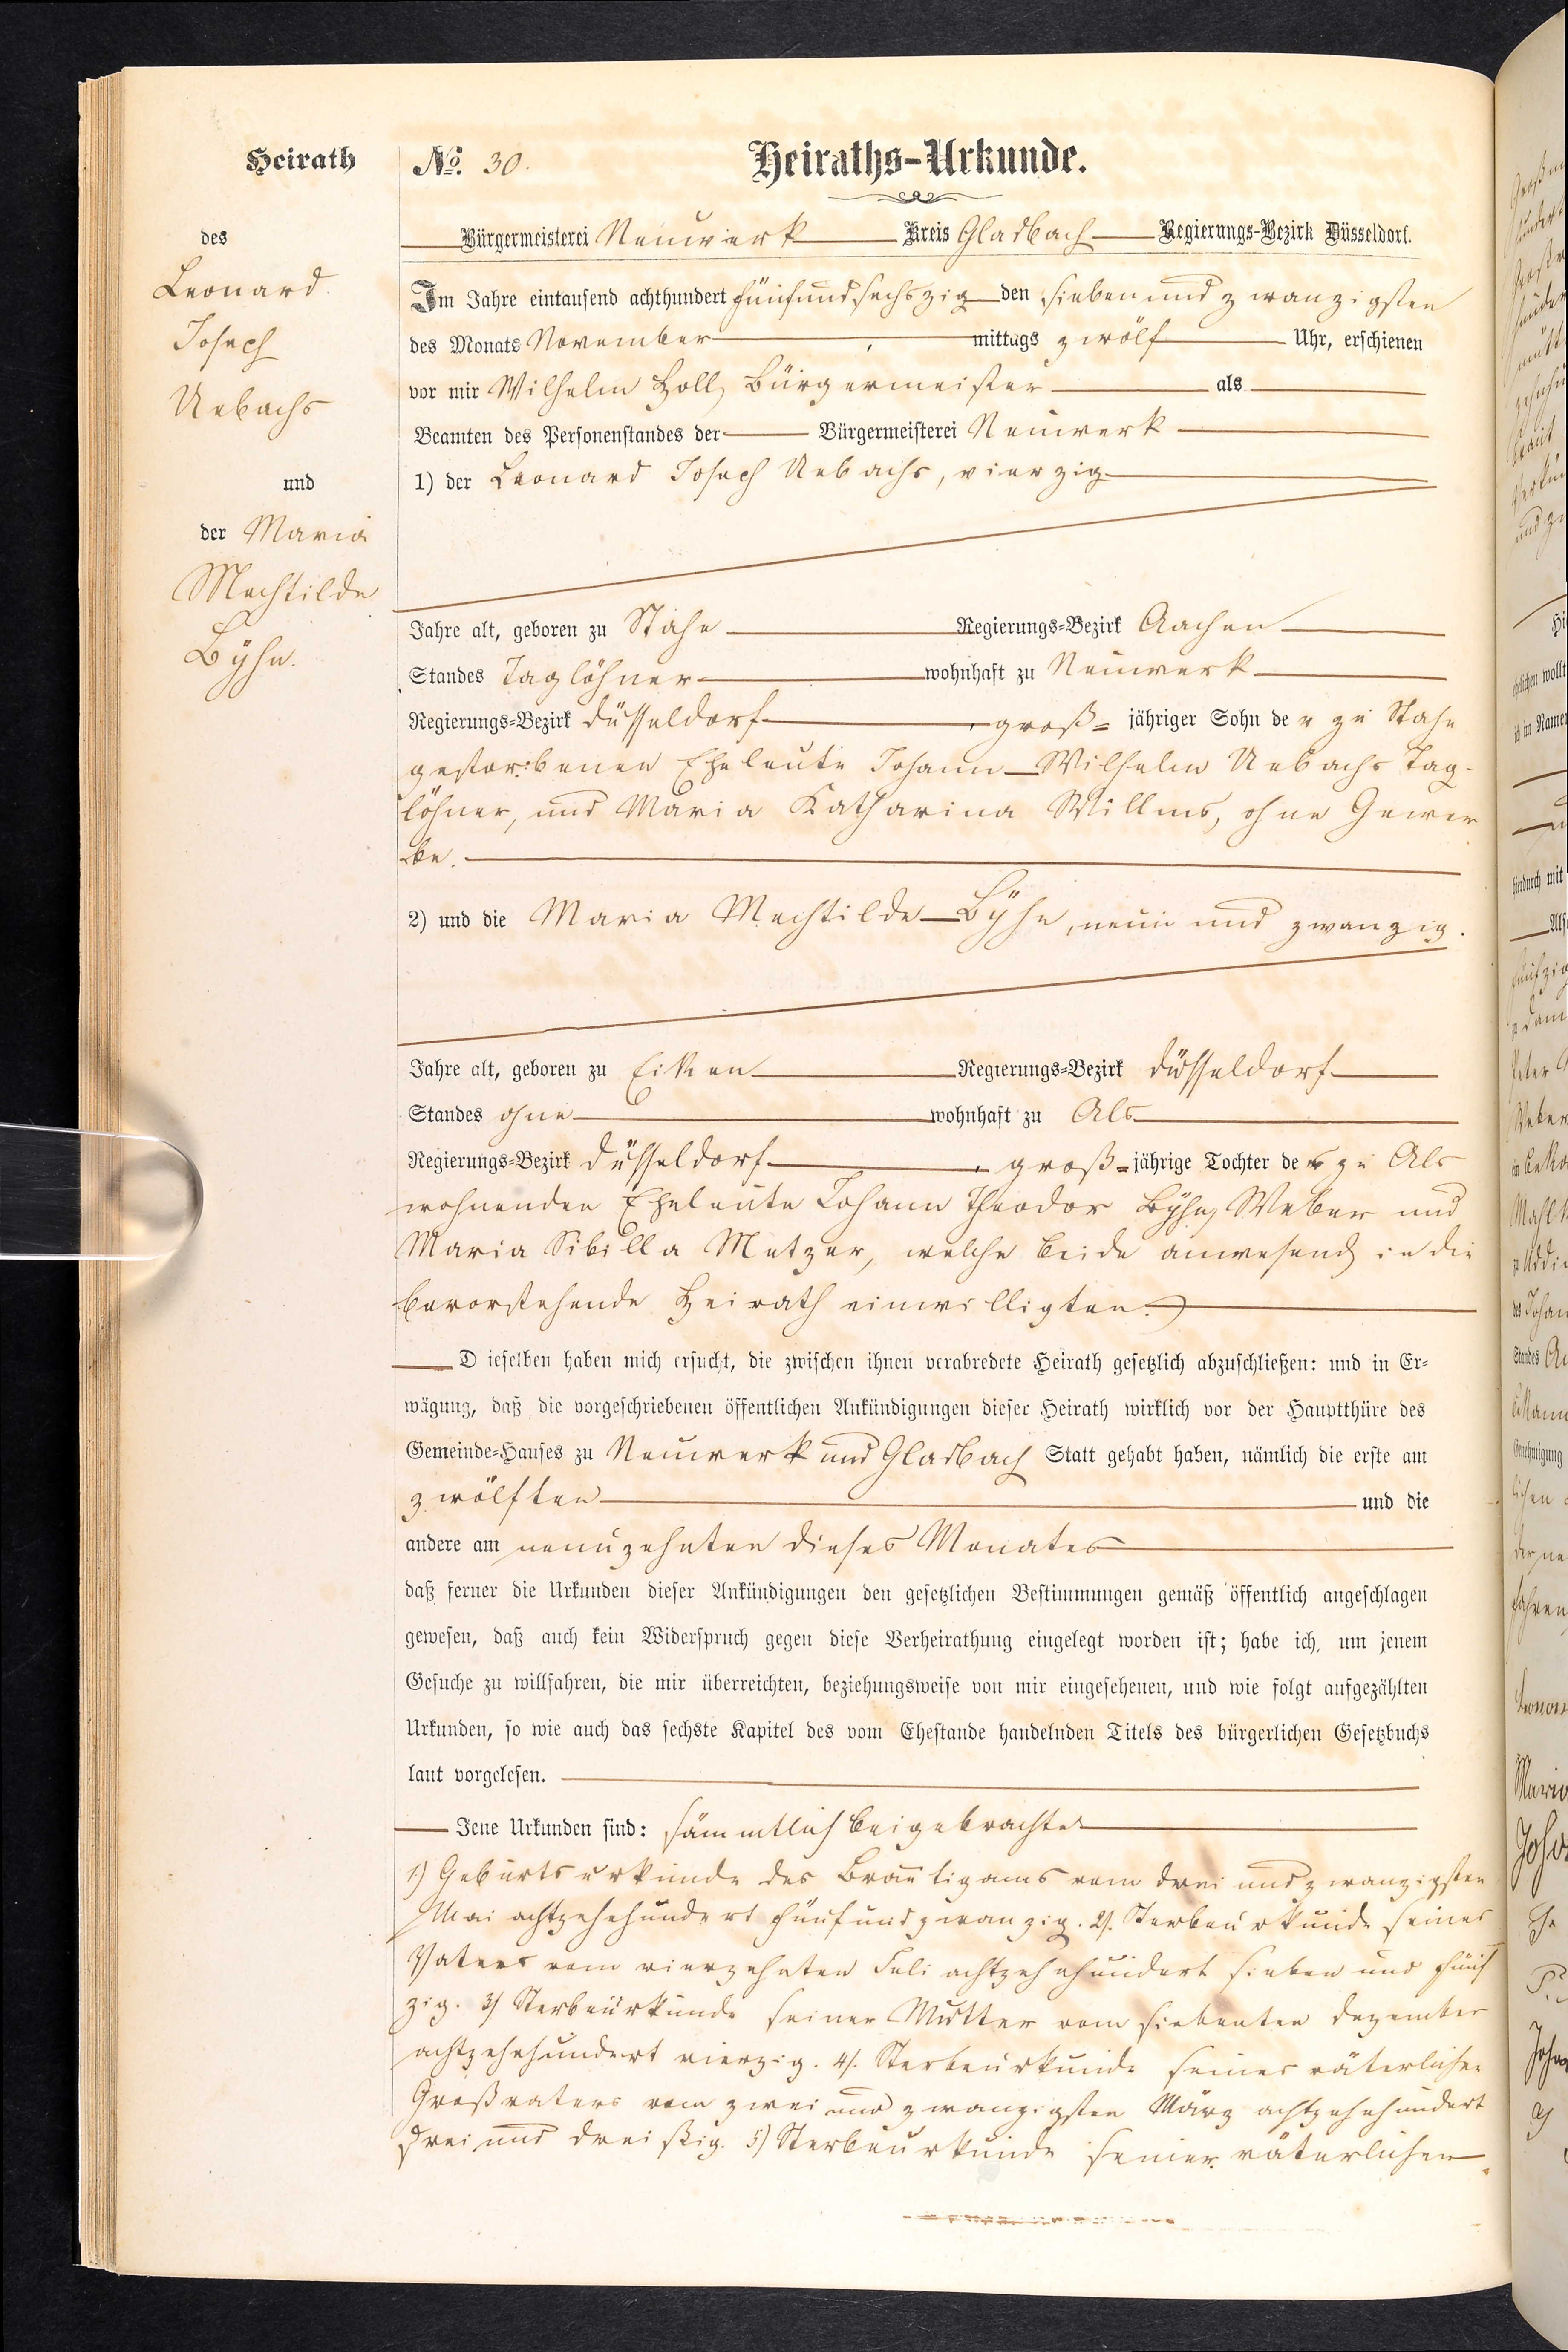 Heirath
des
Leonard
Joseph
Uebachs
und
der Maria
Mechtilde
Byhn.
No. 30.
Heiraths-Urkunde.
Bürgermeisterei Neuwerk Kreis Gladbach Regierungs-Bezirk Düsseldorf.
Im Jahre eintausend achthundert fünfundsechszig den siebenundzwanzigsten
des Monats November mittags zwölf Uhr, erschienen
vor mir Wilhelm Holl, Bürgermeister als
Beamten des Personenstandes der Bürgermeisterei Neuwerk
1) der Leonard Joseph Uebachs, vierzig
Jahre alt, geboren zu Stahe Regierungs-Bezirk Aachen
Standes Taglöhner wohnhaft zu Neuwerk
Regierungs-Bezirk Düsseldorf, groß-jähriger Sohn der zu Stahe
gestorbenen Eheleute Johann Wilhelm Uebachs Tag-
löhner, und Maria Katharina Willms, ohne Gewer
be.
2) und die Maria Mechtilde Byhn, neun und zwanzig.
Jahre alt, geboren zu Eiken Regierungs-Bezirk Düsseldorf
Standes ohne wohnhaft zu Als
Regierungs-Bezirk Düsseldorf, groß-jährige Tochter der zu Als
wohnenden Eheleute Johann Theodor Byhn, Weber und
Maria Sibilla Metzer, welche beide anwesend in die
bevorstehende Heirath einwilligten.
Dieselben haben mich ersucht, die zwischen ihnen verabredete Heirath gesetzlich abzuschließen: und in Er-
wägung, daß die vorgeschriebenen öffentlichen Ankündigungen dieser Heirath wirklich vor der Hauptthüre des
Gemeinde-Hauses zu Neuwerk und Gladbach Statt gehabt haben, nämlich die erste am
zwölften und die
andere am neunzehnten dieses Monates
daß ferner die Urkunden dieser Ankündigungen den gesetzlichen Bestimmungen gemäß öffentlich angeschlagen
gewesen, daß auch kein Widerspruch gegen diese Verheirathung eingelegt worden ist; habe ich, um jenem
Gesuche zu willfahren, die mir überreichten, beziehungsweise von mir eingesehenen, und wie folgt aufgezählten
Urkunden, so wie auch das sechste Kapitel des vom Ehestande handelnden Titels des bürgerlichen Gesetzbuchs
laut vorgelesen.
Jene Urkunden sind: sämmtlich beigebrachte
1) Geburtsurkunde des Bräutigams vom drei und zwanzigsten
Mai achtzehnhundert fünfundzwanzig. 2). Sterbeurkunde seines
Vaters vom vierzehnten Juli achtzehnhundert sieben und fünf
zig. 3) Sterbeurkunde seiner Mutter vom siebenten Dezember
achtzehnhundert vierzig. 4). Sterbeurkunde seines väterlichen
Großvaters vom zwei und zwanzigsten März achtzehnhundert
drei und dreißig. 5) Sterbeurkunde seiner väterlichen